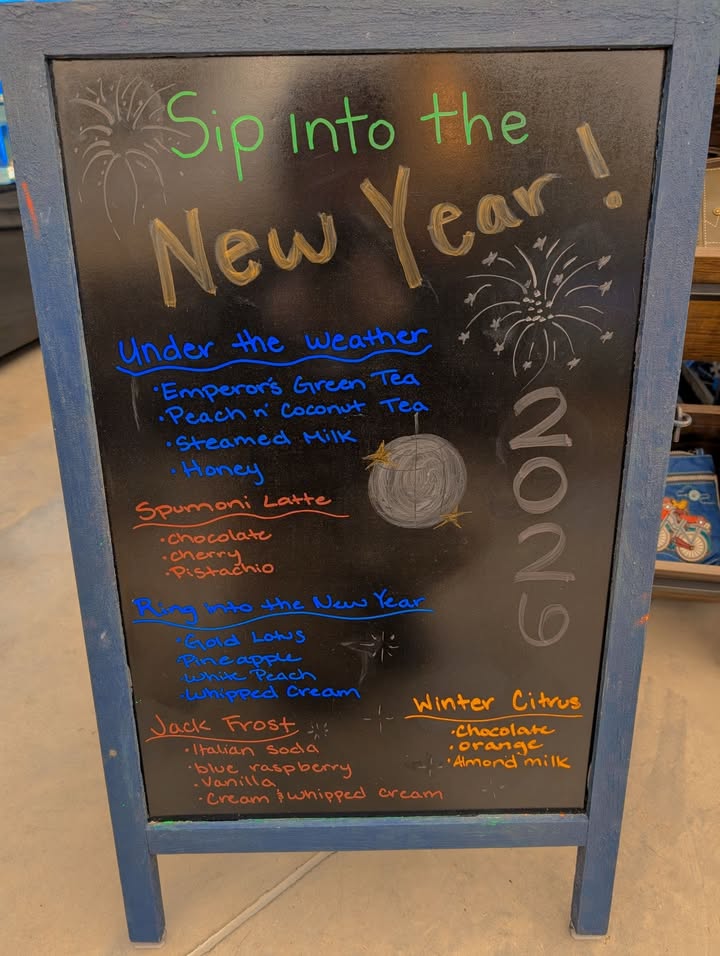 Sip into the
New Year!
Under the weather
• Emperor's Green Tea
• Peach n' Coconut Tea
• Steamed Milk
• Honey
Spumoni Latte
• chocolate
• cherry
• Pistachio
Ring into the New Year
• Gold Lotus
• Pineapple
• White Peach
• Whipped Cream
Jack Frost
• Italian soda
• blue raspberry
• Vanilla
• Cream & whipped cream
2026
Winter Citrus
• Chocolate
• orange
• Almond milk